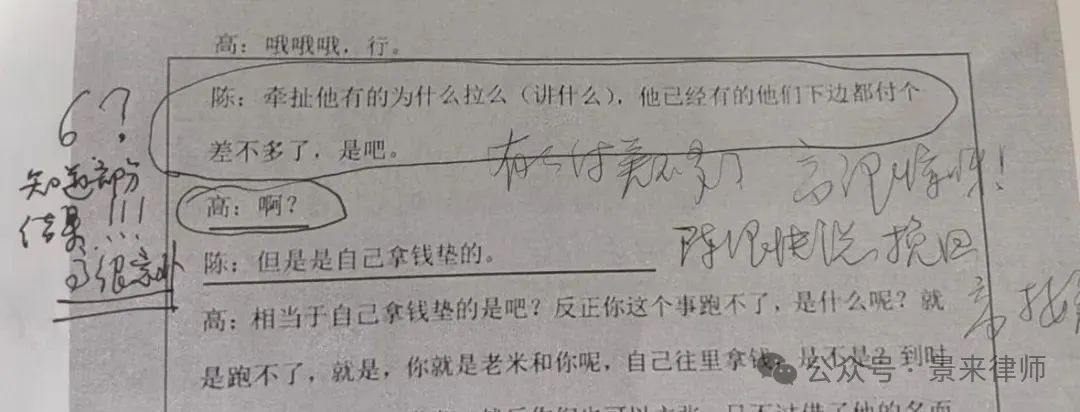 高：哦哦哦，行。
陈：牵扯他有的为什么拉么（讲什么），他已经有的他们下边都付个
差不多了，是吧。
有人付差不多了 高很惊讶！
6？
知道部分
结果!!!
高很意外
高：啊？
陈：但是是自己拿钱垫的。
陈很快说 挽回
高：相当于自己拿钱垫的是吧？反正你这个事跑不了，是什么呢？就
是跑不了，就是，你就是老米和你呢，自己往里拿钱，是不是？到时
公众号·景来律师